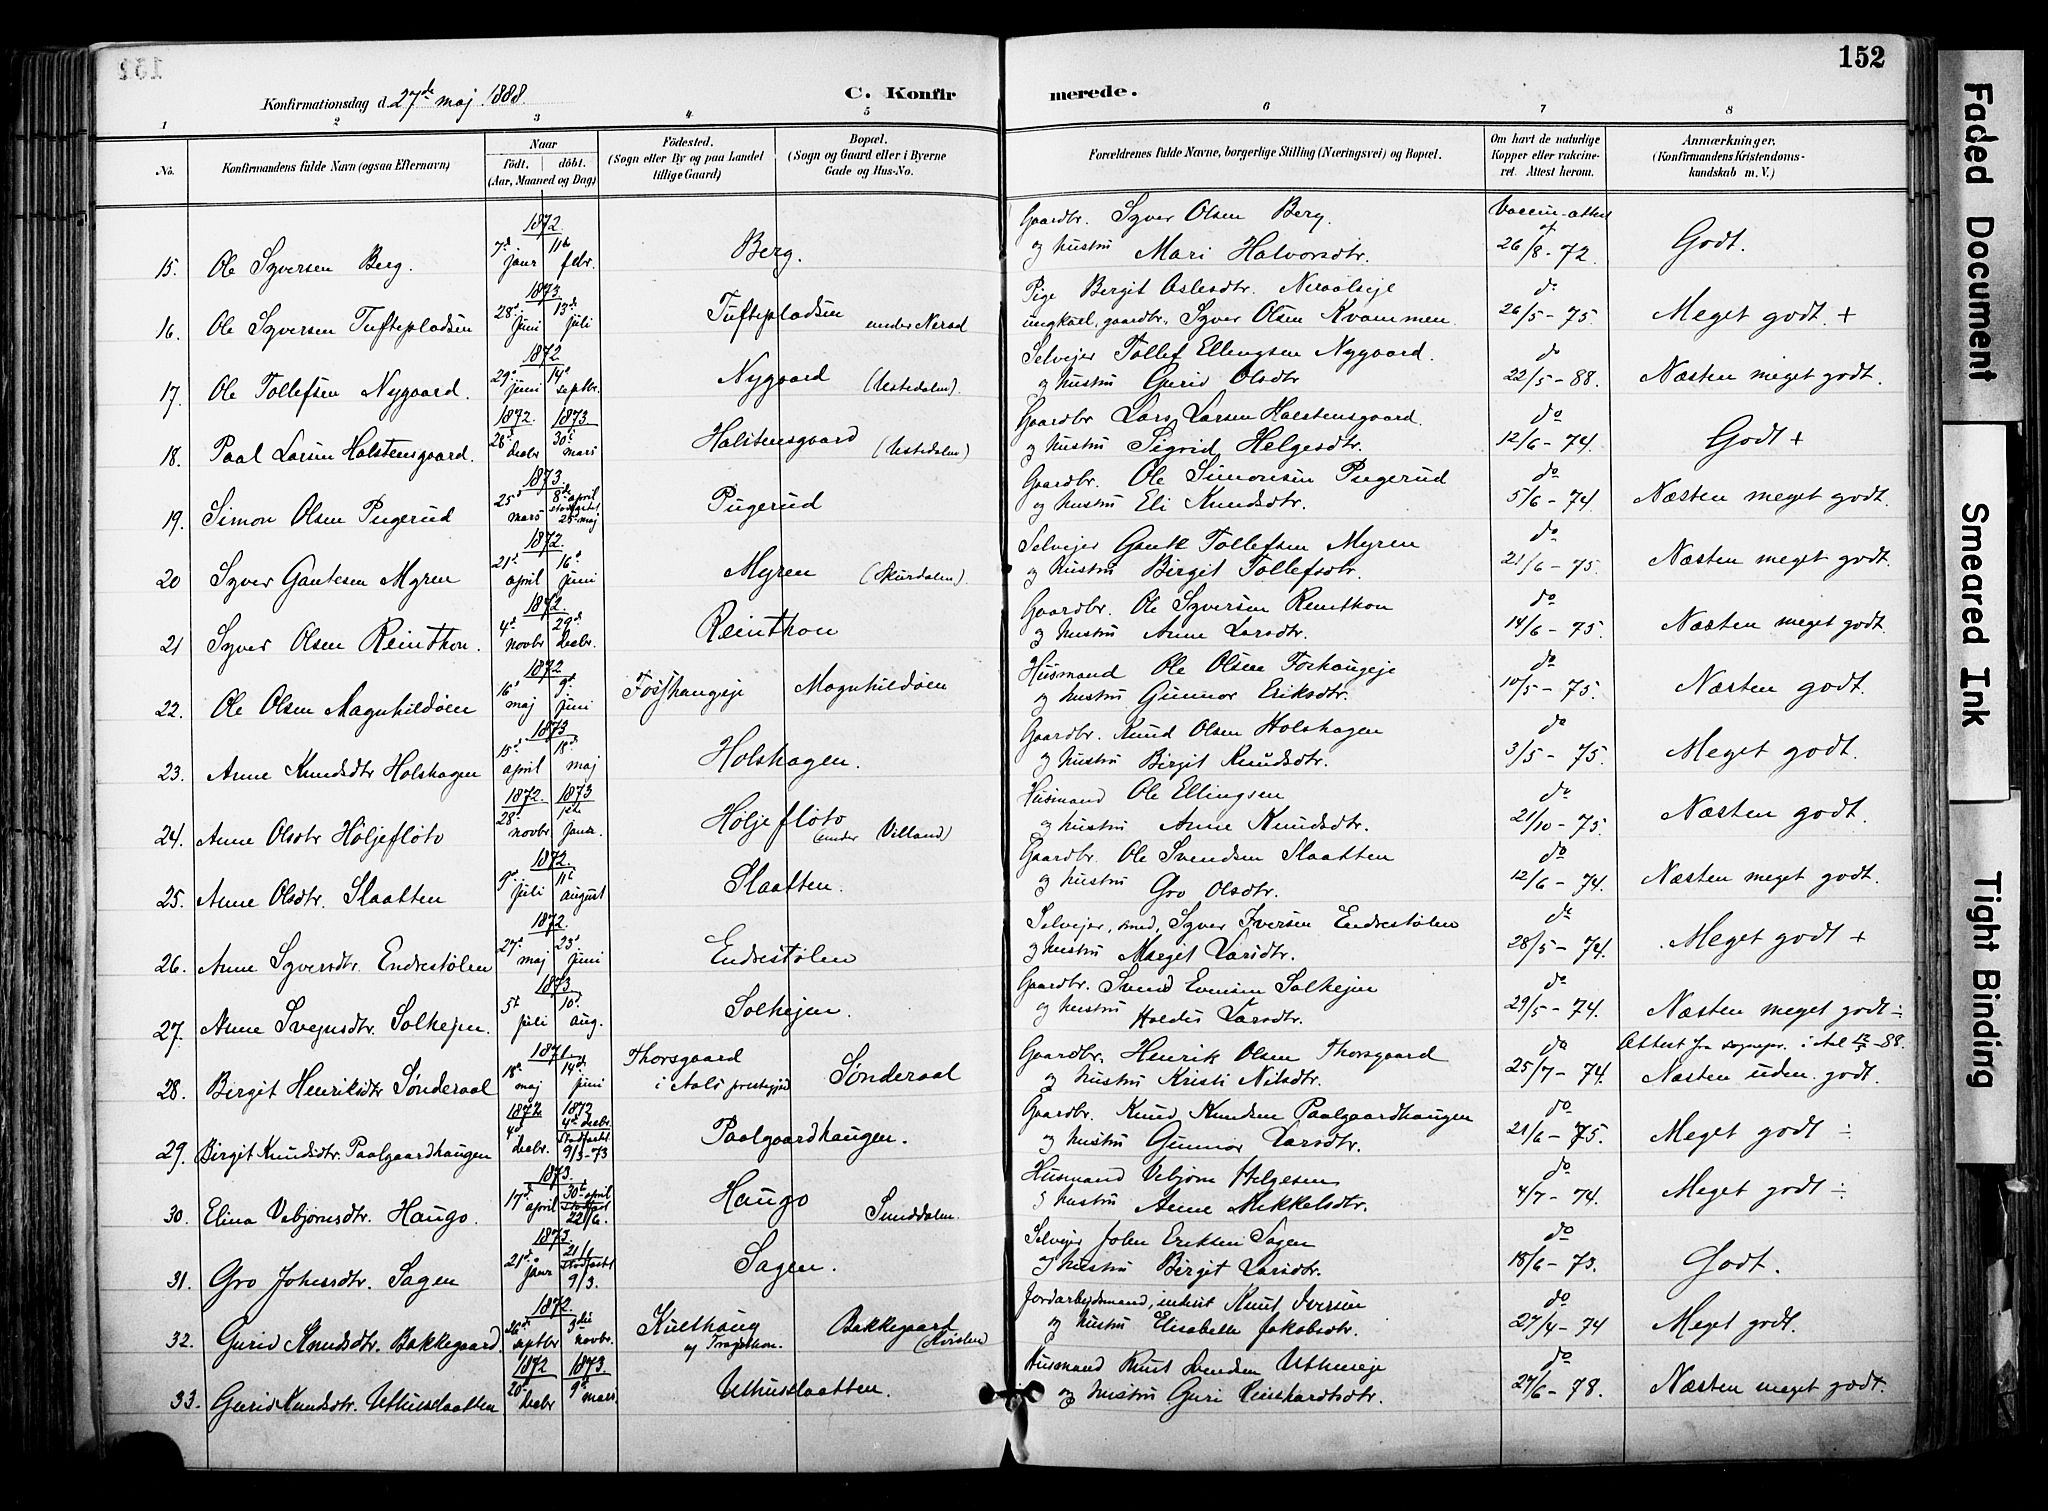 152
Konfirmationsdag d. 27de maj 1888.
C. Konfir
merede.
1 2 3 4 5 6 7 8
No. Konfirmandens fulde Navn (ogsaa Efternavn) Naar født. døbt. (Aar, Maaned og Dag) Fødested. (Sogn eller By og paa Landet tillige Gaard) Bopæl. (Sogn og Gaard eller i Byerne Gade og Hus-No. Forældrenes fulde Navne, borgerlige Stilling (Næringsvei) og Bopæl. Om havt de naturlige Kopper eller vakcineret. Attest herom. Anmærkninger. (Konfirmandens Kristendomskundskab m. V.)
1872 Gaardbr. Syver Olsen Berg. Vaccin-attest af
15. Ole Syversen Berg. 7d janr 11te febr. Berg. og hustru Mari Halvorsdtr. 26/8 - 72. Godt.
1873 Pige Bergit Aslesdtr. Neraalseje do
16. Ole Syversen Tuftepladsen 28d juni 13de juli Tuftepladsen under Neraal ungkarl, gaardbr. Syver Olsen Kvammen 26/5 - 75. Meget godt. +
1872 Selvejer Tollef Ellingsen Nygaard. do
17. Ole Tollefsen Nygaard. 29d juni 14d septbr. Nygaard (Ustedalen) og hustru Gurid Olsdtr 22/5 - 88. Næsten meget godt.
1872. 1873 Gaardbr Lars Larsen Halstensgaard. do
18. Paal Larsen Halstensgaard. 28d decbr 30te mars Halstensgaard (Ustedalen) og hustru Sigrid Helgesdtr. 12/6 - 74. Godt +
1873. Gaardbr. Ole Simonsen Pugerud do
19. Simon Olsen Pugerud 25d mars 8de april stadfæstet 25 maj Pugerud og hustru Eli Knudsdtr. 5/6 - 74. Næsten meget godt.
1872. Selvejer Gaute Tollefsen Myren do
20 Syver Gautesen Myren 21d april 16d juni Myren (Skurdalen) og hustru Birgit Tollefsdtr. 21/6 - 75. Næsten meget godt.
1872. Gaardbr. Ole Syversen Reinthon do
21 Syver Olsen Reinthon. 4d novbr 29d decbr. Reinthon og hustru Anne Larsdtr. 14/6 - 75. Næsten meget godt.
1872 Husmand Ole Olsen Foshaugeje do
22. Ole Olsen Magnhildøen 16d maj 9d juni Fosshaugeje Magnhildøen og hustru Gunnor Eriksdtr. 10/5 - 75. Næsten godt.
1873 Gaardbr. Knud Olsen Holshagen do
23. Anne Knudsdtr Holshagen 15d april 18d maj Holshagen. og hustru Birgit Knudsdtr. 3/5 - 75. Meget godt.
1872. 1873 Husmand Ole Ellingsen do
24. Anne Olsdtr Høljefløto 28d novbr 1ste janr. Høljefløto (under Villand) og hustru Anne Knudsdtr. 21/10 - 75. Næsten godt.
1872. Gaardbr. Ole Svendsen Slaatten do
25. Anne Olsdtr. Slaatten 9d juli 11te august Slaatten. og hustru Gro Olsdtr. 12/6 - 74. Næsten meget godt.
1872. Selvejer, smed, Syver Iversen Endrestølen do
26. Anne Syversdtr. Endrestølen 27d maj 23d juni Endrestølen og hustru Marget Larsdtr. 28/5 - 74. Meget godt +
1873. Gaardbr. Svend Evensen Solhejen do
27. Anne Svejnsdtr. Solhejen. 5t juli 10d aug. Solhejen. og hustru Haldis Larsdtr. 29/5 - 74. Næsten meget godt ÷
1871. Thorsgaard Gaardbr. Henrik Olsen Thorsgaard do Attest fra sognepr. i Aal
28. Birgit Henriksdtr Sønderaal 18d maj 14d juni i Aals prestegjeld Sønderaal og hustru Kristi Nilsdtr. 25/7 - 74. Næsten uden. godt.
1872 1872 Gaardbr. Knud Knudsen Paalgaardhaugen do
29. Birgit Knudsdtr. Paalgaardhaugen 4d decbr. 4d decbr stadfæstet 9/3-73 Paalgaardhaugen. og hustru Gunnor Larsdtr. 21/6 - 75. Meget godt ÷
1873. Husmand Vebjørn Helgesen do
30. Elina Vebjørnsdtr. Haugo. 17d april 30te april stadfæst 22/6. Haugo Sunddalen. og hustru Anne Mikkelsdtr. 4/7 - 74. Meget godt ÷
1873. Selvejer John Eriksen Sagen do
31. Gro Johnsdtr. Sagen 21d janr 21/1 stadfæstet 9/3. Sagen. og hustru Birgit Larsdtr. 18/6 - 73. Godt.
1872. Jordarbejdsmand, inderst Knut Iversen do
32. Gurid Knudsdtr. Bakkegaard. 26d septbr 3die novbr. Kulthaug Bakkegaard (Kvislen) og hustru Elisabeth Jakobsdtr. 27/4 - 74 Meget godt.
1872 1873. Husmand Knut Svendsen Uthuseje do
33. Gurid Knudsdtr. Uthusslaatten 20d decbr 9d mars. Uthusslaatten. og hustru Guri Reinhardtsdtr. 27/6 - 78. Næsten meget godt.
Faded Document
Smeared Ink
Tight Binding